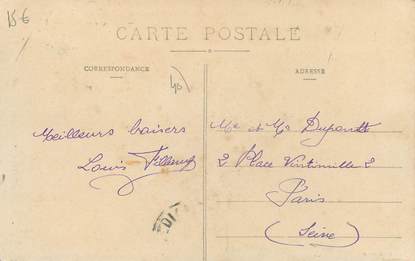 15 €
CARTE POSTALE
CORRESPONDANCE
ADRESSE
40
Meilleurs baisers
Louis
Mr et Me Dupontt
2 Place Vintimille 2
Paris
(Seine)